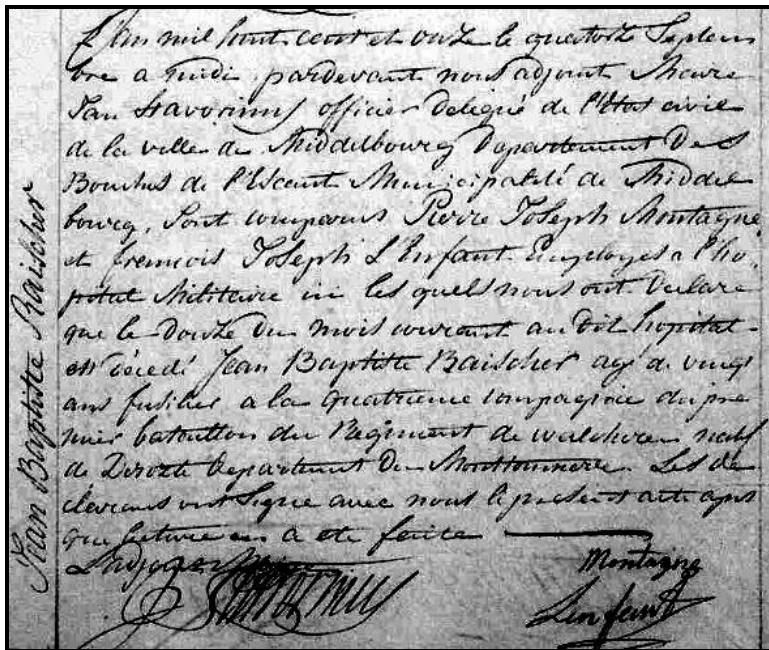 Jean Baptiste Raischer
L'an mil huit cent et onze le quatorze Septem
bre a midi pardevant nous adjoint Maire
Jan Stavorinus officier delegué de l'Etat civil
de la ville de Middelbourg Departement Des
Bouches de l'Escaut Municipalité de Middel
bourg, Sont comparus Pierre Joseph Montagne
et francois Joseph L'Enfant Employes a l'ho
pital Militaire ici les quels nous ont Declare
que le Douze du mois courant au dit hopital
est decedé Jean Baptiste Raischer agé de vingt
ans fusilier a la quatrieme compagnie du pre
mier bataillon du Regiment de walchren natif
de Departement du Monttonnerre. Les de
clarans ont Signe avec nous le present acte apres
que lecture en a ete faite
L'adjoint Maire
Montagne
Lenfant